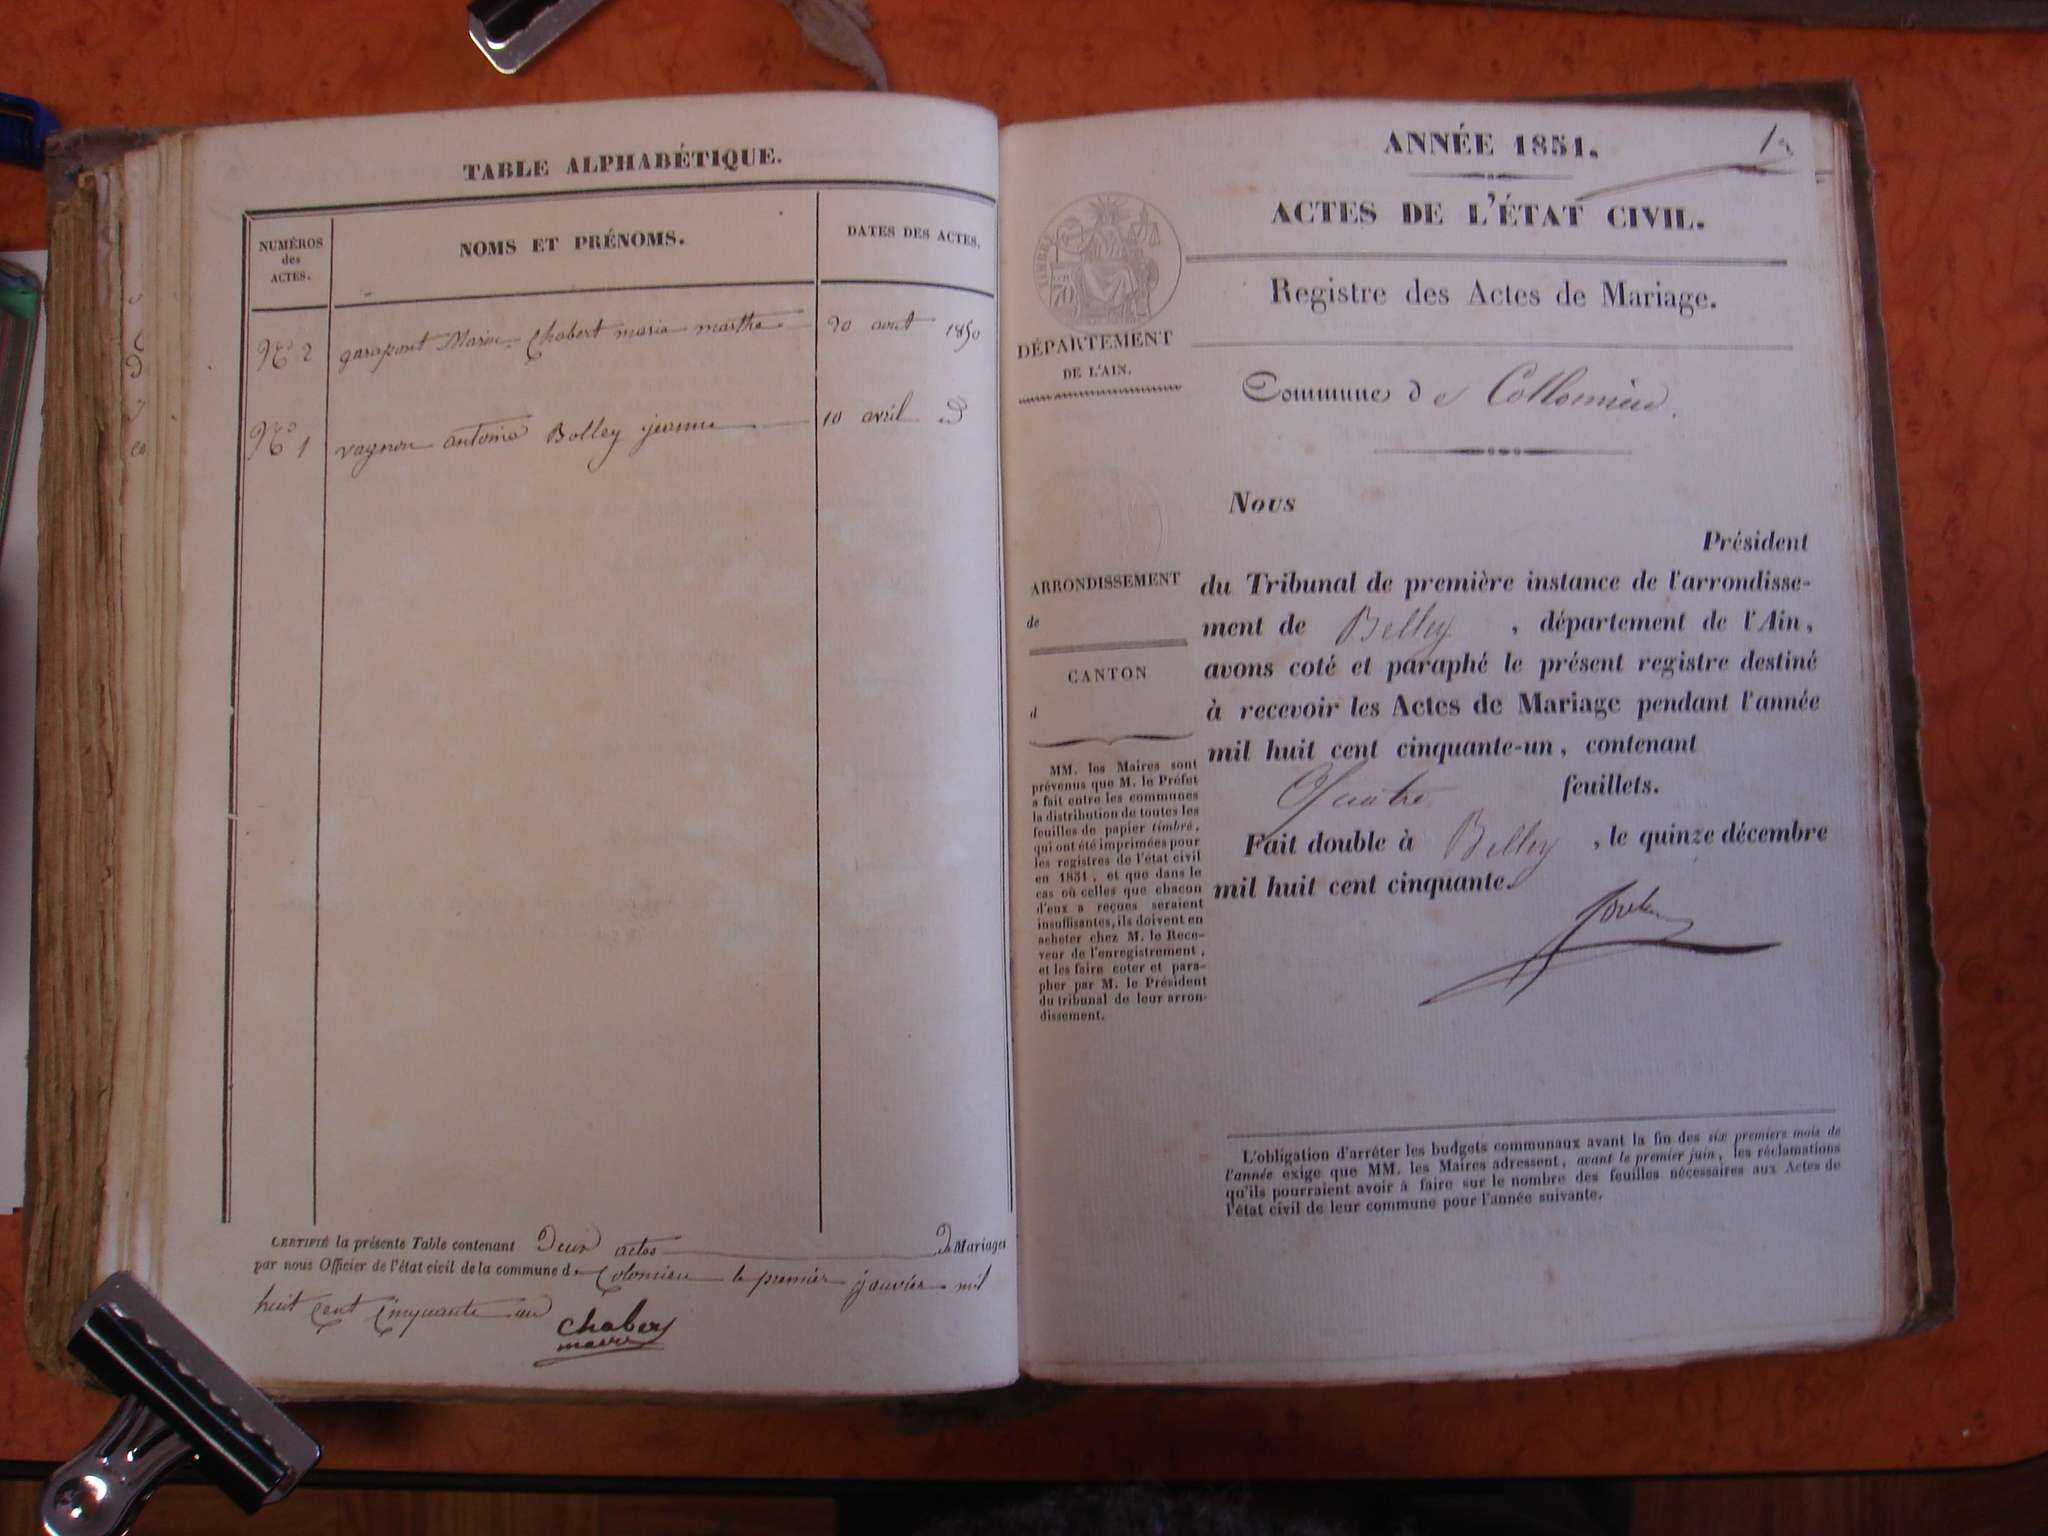 TABLE ALPHABÉTIQUE.
NUMÉROS
des
ACTES.
NOMS ET PRÉNOMS.
DATES DES ACTES.
No 2 garapont Marin Chabert marie marthe 20 aout 1850
No 1 vagnon antoine Bolley jeanne 10 avril D
CERTIFIÉ la présente Table contenant Deux actes De Mariages
par nous Officier de l'état civil de la commune de Colomieu le premier janvier mil
huit cent cinquante un
chabert
maire
ANNÉE 1851.
ACTES DE L'ÉTAT CIVIL.
Registre des Actes de Mariage.
TIMBRE
70
DÉPARTEMENT
DE L'AIN.
Commune de Collomieu.
Nous
Président
du Tribunal de première instance de l'arrondisse-
ment de Belley, département de l'Ain,
avons coté et paraphé le présent registre destiné
à recevoir les Actes de Mariage pendant l'année
mil huit cent cinquante-un, contenant
Quatre feuillets.
Fait double à Belley, le quinze décembre
mil huit cent cinquante.
ARRONDISSEMENT
de
CANTON
d
MM. les Maires sont
prévenus que M. le Préfet
a fait entre les communes
la distribution de toutes les
feuilles de papier timbré,
qui ont été imprimées pour
les registres de l'état civil
en 1851, et que dans le
cas où celles que chacun
d'eux a reçues seraient
insuffisantes, ils doivent en
acheter chez M. le Rece-
veur de l'enregistrement,
et les faire coter et para-
pher par M. le Président
du tribunal de leur arron-
dissement.
L'obligation d'arrêter les budgets communaux avant la fin des six premiers mois de
l'année exige que MM. les Maires adressent, avant le premier juin, les réclamations
qu'ils pourraient avoir à faire sur le nombre des feuilles nécessaires aux Actes de
l'état civil de leur commune pour l'année suivante.